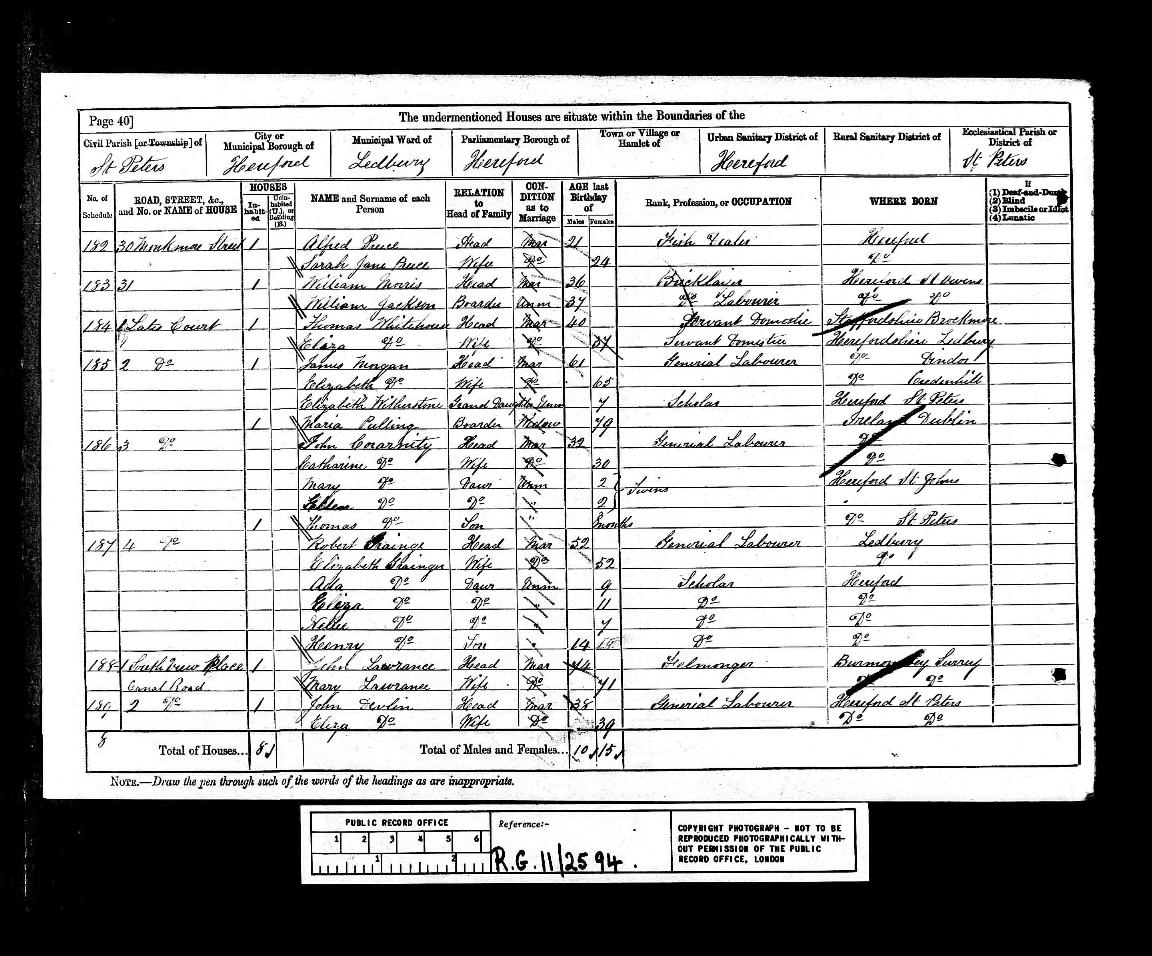 Page 40]
The undermentioned Houses are situate within the Boundaries of the
Civil Parish [or Township] of City or Municipal Borough of Municipal Ward of Parliamentary Borough of Town or Village or Hamlet of Urban Sanitary District of Rural Sanitary District of Ecclesiastical Parish or District of
St Peters Hereford Ledbury Hereford Hereford St Peters
No. of Schedule ROAD, STREET, &c., and No. or NAME of HOUSE HOUSES Inhabited Uninhabited (U.), or Building (B.) NAME and Surname of each Person RELATION to Head of Family CONDITION as to Marriage AGE last Birthday of Males Females Rank, Profession, or OCCUPATION WHERE BORN If (1) Deaf-and-Dumb (2) Blind (3) Imbecile or Idiot (4) Lunatic
182 30 Monkmore Street 1 Alfred Head Mar 21 Fish Hereford
Sarah Jane Wife Do 24 Do
183 31 1 William Morris Head Mar 36 Bricklayer Hereford St Owens
William Jackson Boarder Unm 37 Do Labourer Do Do
184 1 Court 1 Thomas Whitehouse Head Mar 40 Servant Domestic Staffordshire Brockmore
Eliza Do Wife Do 37 Servant Domestice Herefordshire Ledbury
185 2 Do 1 James Morgan Head Mar 61 Generial Labourer Do Dindor
Elizabeth Do Wife Do 65 Do Credenhill
Elizabeth Witherstone Grand Daughter Unm 7 Scholar Hereford St Peters
1 Maria Pulling Boarder Widow 79 Ireland Dublin
186 3 Do John Head Mar 32 Generial Labourer Do
Catharine Do Wife Do 30 Do
Mary Do Daur Unm 2 Twins Hereford St Johns
Ellen Do Do " 2
1 Thomas Do Son " months Do St Peters
187 4 Do Robert Grainge Head Mar 52 Generial Labourer Ledbury
Elizabeth Wife Do 52 Do
Ada Do Daur Unm 9 Scholar Hereford
Eliza Do Do " 11 Do Do
Nellie Do Do " 7 Do Do
Henry Do Son " 14 Do Do
188 1 South View Place 1 John Lawrance Head Mar 74 Felmonger Surrey
Canal Road Mary Lawrance Wife Do 71 Do Do
189 2 Do 1 John Devlin Head Mar 38 Generial Labourer Hereford St Peters
Eliza Do Wife Do 39 Do Do
8 Total of Houses... 8 Total of Males and Females... 10 15
NOTE.—Draw the pen through such of the words of the headings as are inappropriate.
PUBLIC RECORD OFFICE
1 2 3 4 5 6
1 2
Reference:-
R.G. 11/2594.
COPYRIGHT PHOTOGRAPH - NOT TO BE
REPRODUCED PHOTOGRAPHICALLY WITH-
OUT PERMISSION OF THE PUBLIC
RECORD OFFICE, LONDON